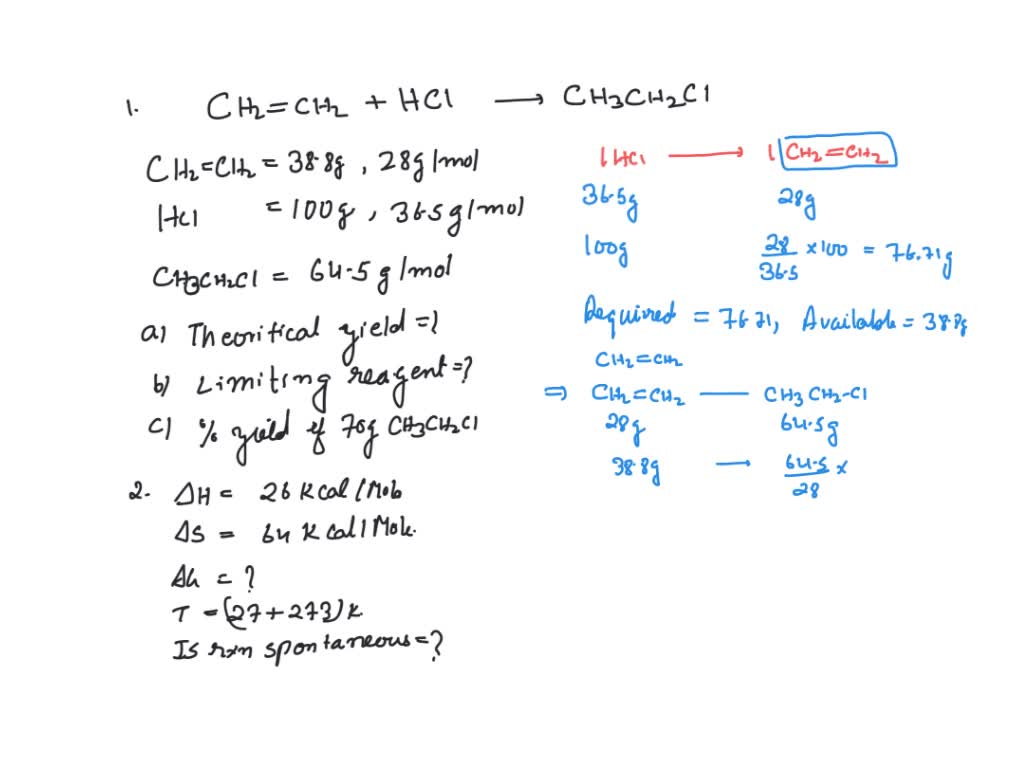 1. CH2=CH2 + HCl → CH3CH2Cl
CH2=CH2 = 38.8g, 28g/mol
HCl = 100g, 36.5g/mol
CH3CH2Cl = 64.5 g/mol
a) Theoritical yield=?
b) Limiting reagent=?
c) % yield if 70g CH3CH2Cl
2. ΔH = 26 Kcal/Mole
ΔS = 64 Kcal/Mole.
ΔG = ?
T = (27+273)K
Is rxn spontaneous=?
1HCl → 1 CH2=CH2
36.5g 28g
100g 28/36.5 ×100 = 76.71g
Required = 76.71, Available = 38.8g
CH2=CH2
⇒ CH2=CH2 — CH3CH2-Cl
28g 64.5g
38.8g → 64.5/28 ×